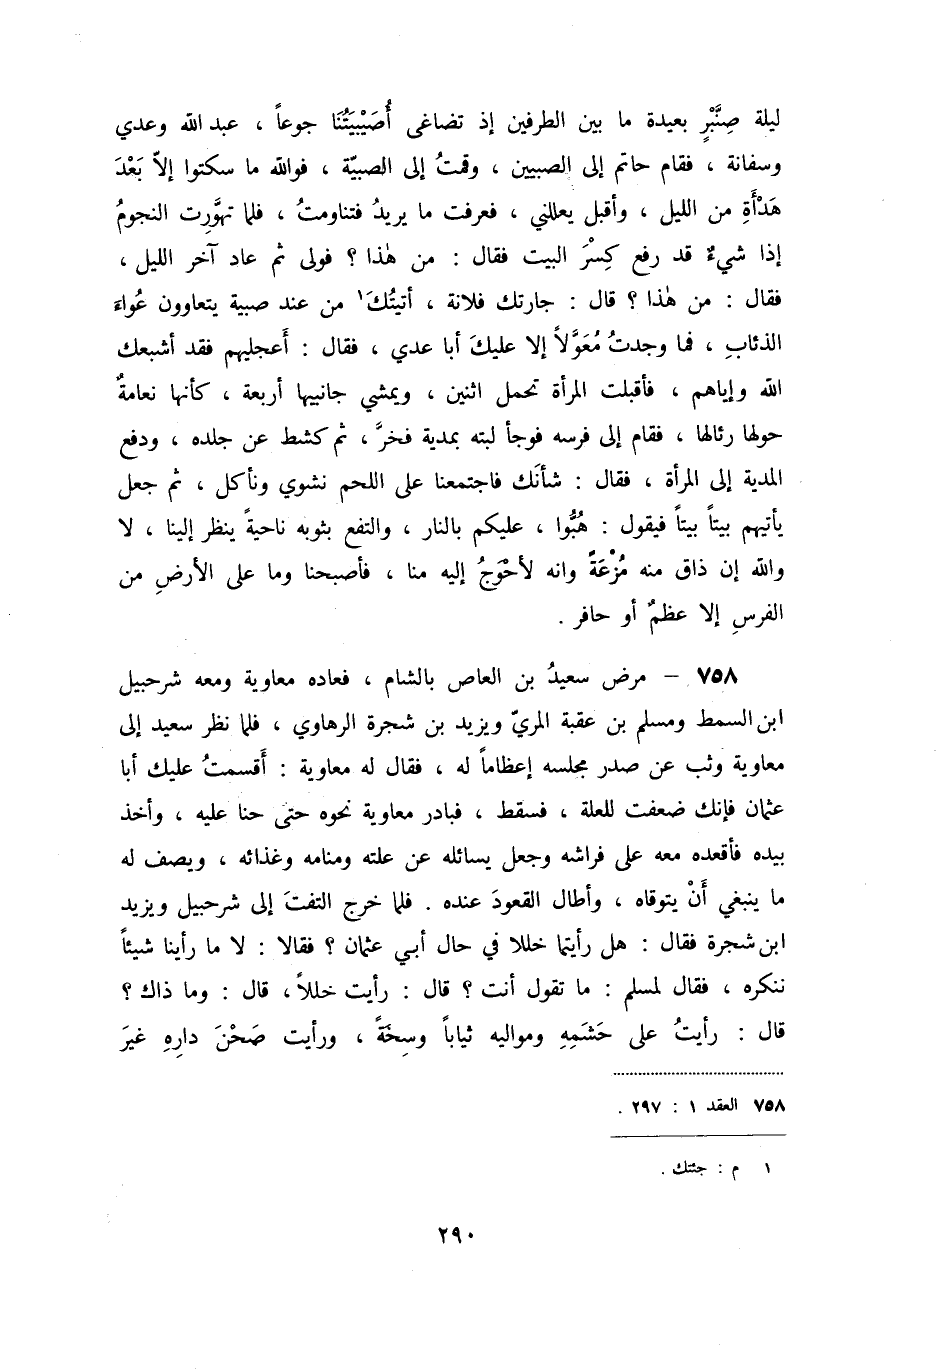 ليلة صِنَّبْرٍ بعيدة ما بين الطرفين إذ تضاغى أُصَيْبِيَتُنَا جوعاً ، عبد الله وعدي
وسفانة ، فقام حاتم إلى الصبيين ، وقمتُ إلى الصبيّة ، فوالله ما سكتوا إلاّ بَعْدَ
هَدْأَةٍ من الليل ، وأقبل يعللني ، فعرفت ما يريدُ فتناومتُ ، فلما تهوَّرت النجومُ
إذا شيءٌ قد رفع كِسْرَ البيت فقال : من هٰذا ؟ فولى ثم عاد آخر الليل ،
فقال : من هٰذا ؟ قال : جارتك فلانة ، أتيتُكَ١ من عند صبية يتعاوون عُواءَ
الذئابِ ، فما وجدتُ مُعَوَّلاً إلا عليكَ أبا عدي ، فقال : أَعجليهم فقد أشبعك
الله وإياهم ، فأقبلت المرأة تحمل اثنين ، ويمشي جانبيها أربعة ، كأنها نعامةٌ
حولها رئالها ، فقام إلى فرسه فوجأ لبته بمدية فخرَّ ، ثم كشط عن جلده ، ودفع
المدية إلى المرأة ، فقال : شأنَك فاجتمعنا على اللحم نشوي ونأكل ، ثم جعل
يأتيهم بيتاً بيتاً فيقول : هُبُّوا ، عليكم بالنار ، والتفع بثوبه ناحيةً ينظر إلينا ، لا
والله إن ذاق منه مُزْعَةً وانه لأحْوَجُ إليه منا ، فأصبحنا وما على الأرضِ من
الفرسِ إلا عظمٌ أو حافر .
٧٥٨ – مرض سعيدُ بن العاص بالشام ، فعاده معاوية ومعه شرحبيل
ابن السمط ومسلم بن عقبة المريّ ويزيد بن شجرة الرهاوي ، فلما نظر سعيد إلى
معاوية وثب عن صدر مجلسه إعظاماً له ، فقال له معاوية : أَقسمتُ عليك أبا
عثمان فإنك ضعفت للعلة ، فسقط ، فبادر معاوية نحوه حتى حنا عليه ، وأخذ
بيده فأقعده معه على فراشه وجعل يسائله عن علته ومنامه وغذائه ، ويصف له
ما ينبغي أَنْ يتوقاه ، وأطال القعودَ عنده . فلما خرج التفتَ إلى شرحبيل ويزيد
ابن شجرة فقال : هل رأيتما خللا في حال أبي عثمان ؟ فقالا : لا ما رأينا شيئاً
ننكره ، فقال لمسلم : ما تقول أنت ؟ قال : رأيت خللاً ، قال : وما ذاك ؟
قال : رأيتُ على حَشَمِهِ ومواليه ثياباً وسِخَةً ، ورأيت صَحْنَ دارِهِ غيرَ
٧٥٨ العقد ١ : ٢٩٧ .
١ م : جئتك .
٢٩٠